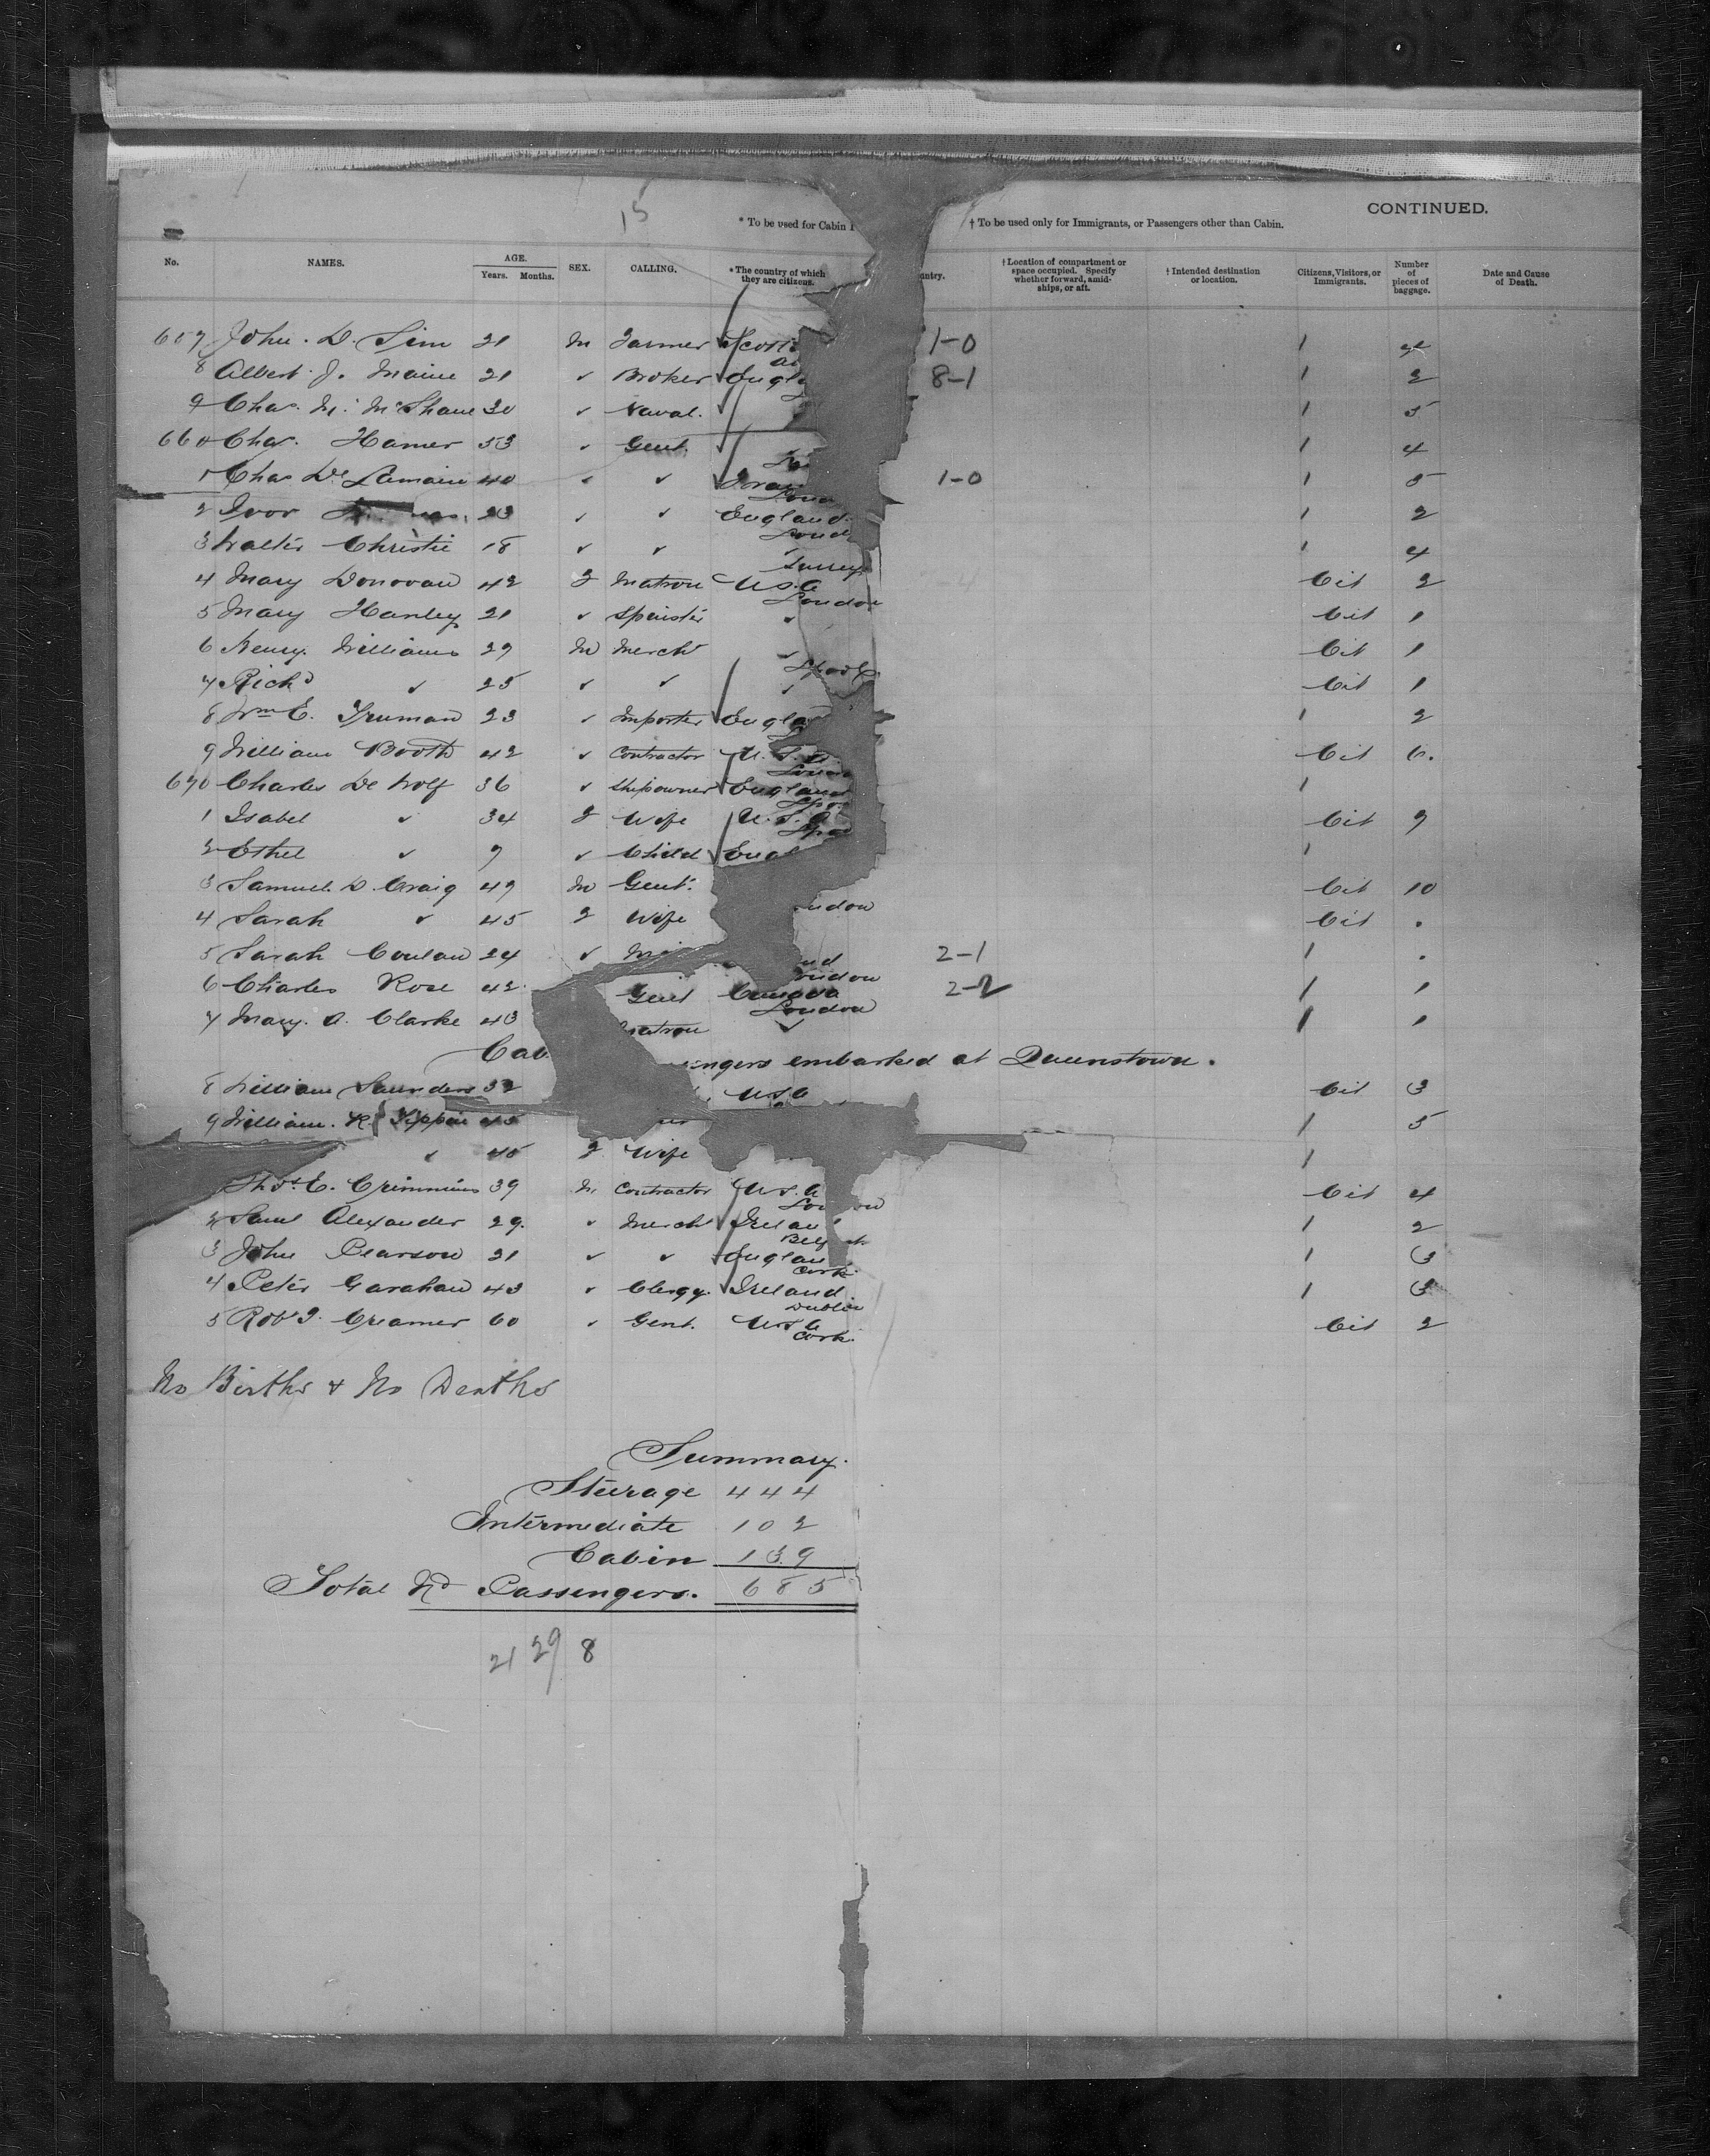 15
CONTINUED.
* To be used for Cabin P
† To be used only for Immigrants, or Passengers other than Cabin.
No. NAMES. AGE. Years. Months. SEX. CALLING. * The country of which they are citizens. ntry. † Location of compartment or space occupied. Specify whether forward, amidships, or aft. † Intended destination or location. Citizens, Visitors, or Immigrants. Number of pieces of baggage. Date and Cause of Death.
657 John. D. Sim 21 M Farmer Scot 1-0 1
8 Albert J. Maine 21 ✓ Broker Engl 8-1 1 2
9 Chas. M. McShane 30 ✓ Naval. 1 5
660 Chas. Hamer 53 ✓ Gent. 1 4
1 Chas De Lemain 40 ✓ ✓ 1-0 1 5
2 Ivor 23 ✓ ✓ England 1 2
Lond
3 Walter Christie 18 ✓ ✓ ✓ 1 4
Surrey
4 Mary Donovan 42 F Matron U.S.A Cit 2
London
5 Mary Hanley 21 ✓ Spinster ✓ Cit 1
6 Henry Williams 29 M Mercht ✓ Cit 1
Lpool
7 Richd ✓ 25 ✓ ✓ ✓ Cit 1
8 Wm E. Truman 23 ✓ Importer Engla 1 2
9 William Booth 42 ✓ Contractor U.S.A. Cit 6.
670 Charles De Wolf 36 ✓ Shipowner England 1
1 Isabel ✓ 34 F Wife U.S.A Cit 9
2 Ethel ✓ 9 ✓ Child Engl 1
3 Samuel D Craig 49 M Gent. Cit 10
ndon
4 Sarah ✓ 45 F Wife Cit .
5 Sarah Conlan 24 ✓ nd 2-1 1 .
ondon
6 Charles Rose 42 Gent Canada 2-2 1 1
London
7 Mary. A. Clarke 43 atron ✓ 1 1
Cab engers embarked at Queenstown.
8 William Saunders 32 USA Cit 3
9 William. R. Tippin 45 1 5
✓ 45 F Wife 1
Thos. E. Crimmins 39 M Contractor U.S.A Cit 4
2 Saml Alexander 29. ✓ Mercht Irelan 1 2
Belf st
3 John Pearson 21 ✓ ✓ Englan 1 3
Cork
4 Peter Garahan 43 ✓ Clergy. Ireland 1 3
Dublin
5 Robt J. Creamer 60 ✓ Gent. USA Cit 2
Cork.
No Births & No Deaths
Summary.
Steerage 444
Intermediate 102
Cabin 139
Total No Passengers. 685
21 29 8